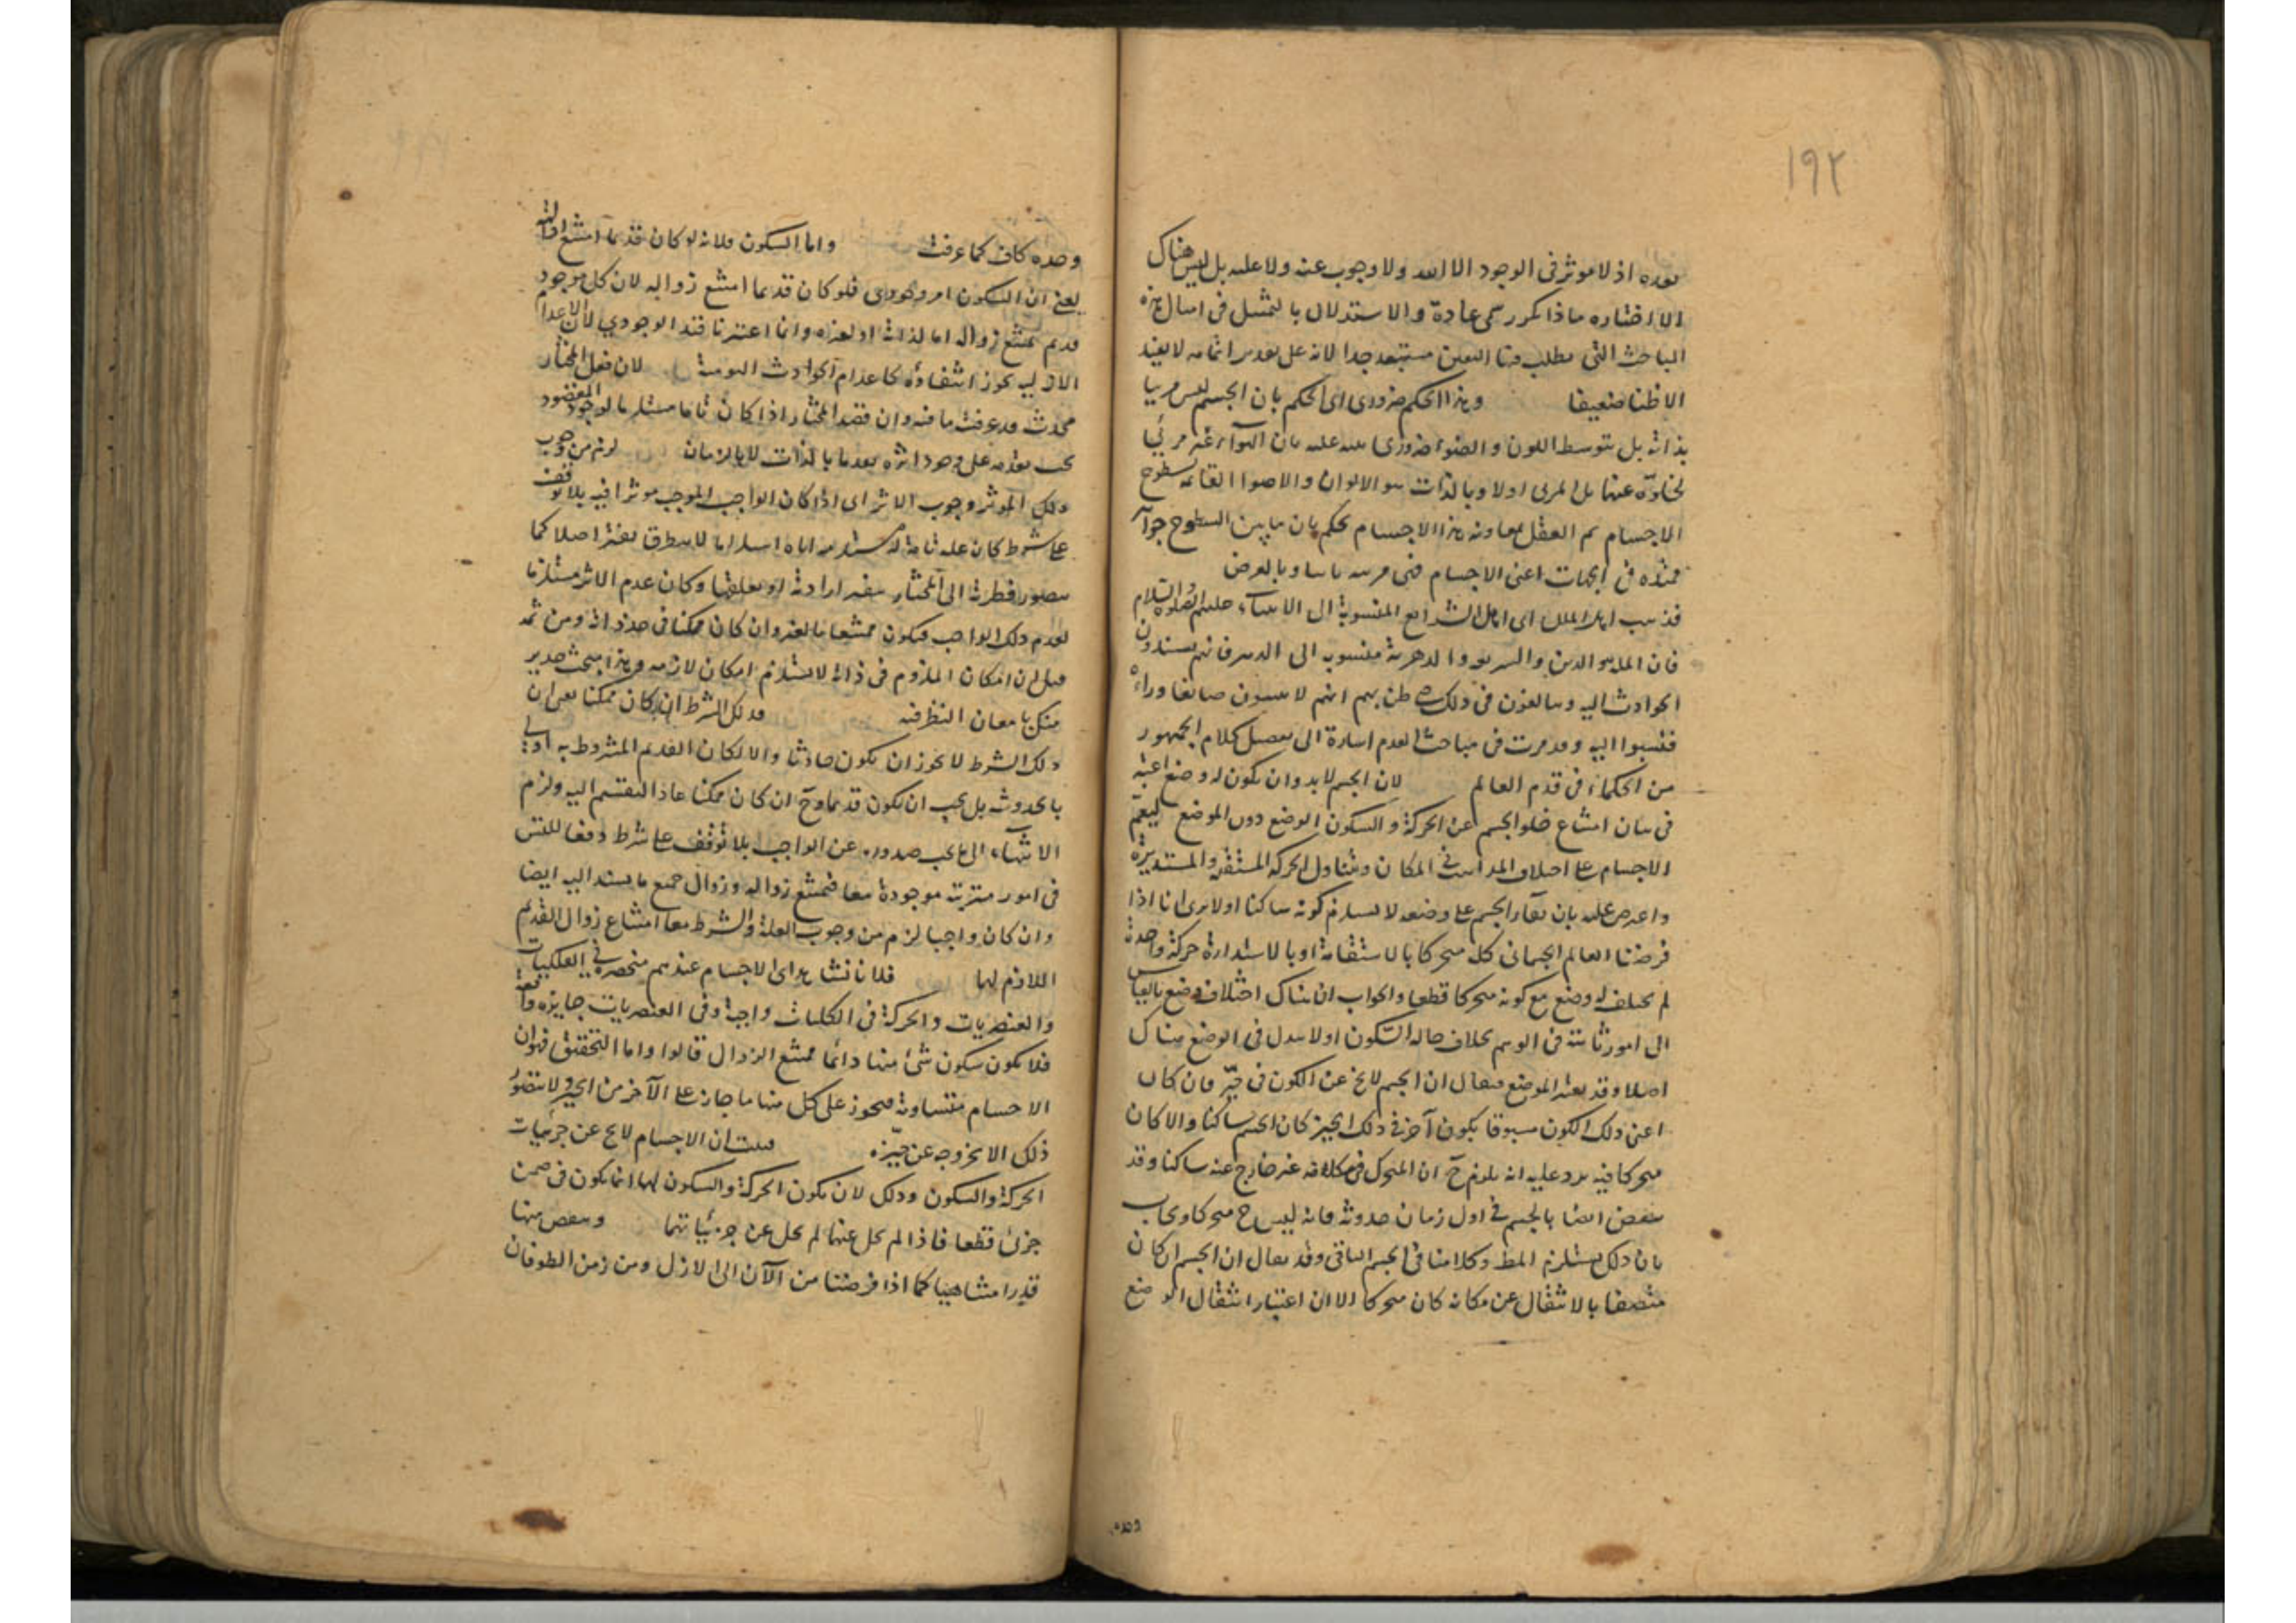 ١٩٢
بعده اذ لا موثر فى الوجود الا الله ولا وجوب عنه ولا عليه بل ليس هناك
الا اختياره ماذا تكرر سمى عادة والاستدلال بالتمثيل فى امثال هذه
المباحث التى يطلب فيها اليقين مستبعد جدا لانه على تقدير اتمامه لا يفيد
الا ظنا ضعيفا وهذا الحكم ضرورى اى الحكم بان الجسم ليس مرييا
بذاته بل بتوسط اللون والضوء ضرورى ينبه عليه بان الهواء غير مرئى
لخلوه عنهما بل المرى اولا وبالذات هو الالوان والاضوا القائمة بسطوح
الاجسام ثم العقل بمعاونة هذا الاحساس يحكم بان ما بين السطوح جواهر
ممتدة فى الجهات اعنى الاجسام فهى مريية ثانيا وبالعرض
فذهب اهل الملل اى اهل الشرائع المنسوبة الى الانبياء عليهم الصلوة والسلام
فان الملة هو الدين والشريعة والدهرية منسوب الى الدهر فانهم يسندون
الحوادث اليه ويبالغون فى ذلك حتى ظن بهم انهم لا يثبتون صانعا وراءه
فنسبوا اليه وقد مرت فى مباحث القدم اشارة الى تفصيل كلام الجمهور
من الحكماء فى قدم العالم لان الجسم لا بد وان يكون له وضع اعتبر
فى بيان امتناع خلو الجسم عن الحركة والسكون الوضع دون الموضع ليعم
الاجسام على اختلاف المذاهب فى المكان ويتناول الحركة المستقيمة والمستديرة
واعترض عليه بان بقاء الجسم على وضعه لا يستلزم كونه ساكنا اولا يرى انا اذا
فرضنا العالم الجسمانى كله متحركا بالاستقامة او بالاستدارة حركة واحدة
لم يختلف له وضع مع كونه متحركا قطعا والجواب ان هناك اختلاف وضع بالقياس
الى امور ثابتة فى الوهم بخلاف حالة السكون اولا تبدل فى الوضع هناك
اصلا وقد يعتبر الموضع فيقال ان الجسم لا يخ عن الكون فى حيز فان كان
اعنى ذلك الكون مسبوقا بكون آخر فى ذلك الحيز كان الجسم ساكنا والا كان
متحركا فيه يرد عليه انه يلزم ح ان المتحرك فى مكانه غير خارج عنه ساكنا وقد
ينقض ايضا بالجسم فى اول زمان حدوثه فانه ليس ح متحركا ويجاب
بان ذلك يستلزم المط وكلامنا فى الجسم الباقى وقد يقال ان الجسم ان كان
متصفا بالانتقال عن مكانه كان متحركا الا ان اعتبار انتقال الوضع
وحده
وحده كاف كما عرفت واما السكون فلانه لو كان قديما امتنع زواله
يعنى ان السكون امر وجودى فلو كان قديما امتنع زواله لان كل موجود
قديم يمتنع زواله اما لذاته او لغيره وانما اعتبرنا قيد الوجودي لان الاعدام
الازلية يجوز انتفاؤه كاعدام الحوادث اليومية لان فعل المختار
محدث قد عرفت ما فيه وان قصد المختار اذا كان تاما مستلزما لوجود المقصود
يجب تقدمه على وجود اثره تقدما بالذات لا بالزمان لزم من وجوب
ذلك الموثر وجوب الاثر اى اذا كان الواجب الموجب موثرا فيه بلا توقف
على شرط كان علة تامة له مستلزمة اياه استلزاما لا يتطرق تغير اصلا كما
يتصور تطرقه الى المختار بتغير ارادته او تعلقها وكان عدم الاثر مستلزما
لعدم ذلك الواجب فيكون ممتنعا بالغير وان كان ممكنا فى حد ذاته ومن ثمه
قيل ان امكان الملزوم فى ذاته لا يستلزم امكان لازمه وهذا مبحث جدير
منك بامعان النظر فيه فذلك الشرط ان كان ممكنا يعنى ان
ذلك الشرط لا يجوز ان يكون حادثا والا لكان القديم المشروط به اولى
بالحدوث بل يجب ان يكون قديما وح ان كان ممكنا عاد التقسيم اليه ولزم
الانتهاء الى ما يجب صدوره عن الواجب بلا توقف على شرط دفعا للتس
فى امور مترتبة موجودة معا فيمتنع زواله وزوال جميع ما يستند اليه ايضا
وان كان واجبا لزم من وجوب العلة والشرط معا امتناع زوال القديم
اللازم لها فلانا نشاهد اى الاجسام عندهم منحصرة فى الفلكيات
والعنصريات والحركة فى الفلكيات واجبة وفى العنصريات جايزه واقعة
فلا يكون سكون شئ منها دائما ممتنع الزوال قالوا واما التحقيق فهو ان
الاجسام متساوية فيجوز على كل منها ما جاز على الآخر من الحيز ولا يتصور
ذلك الا بخروجه عن حيزه فثبت ان الاجسام لا يخ عن جزئيات
الحركة والسكون وذلك لان تكون الحركة والسكون لها انما يكون فى ضمن
جزئ قطعا فاذا لم يخل عنهما لم يخل عن جزئياتهما وينقص منها
قدرا متناهيا كما اذا فرضنا من الآن الى الازل ومن زمن الطوفان